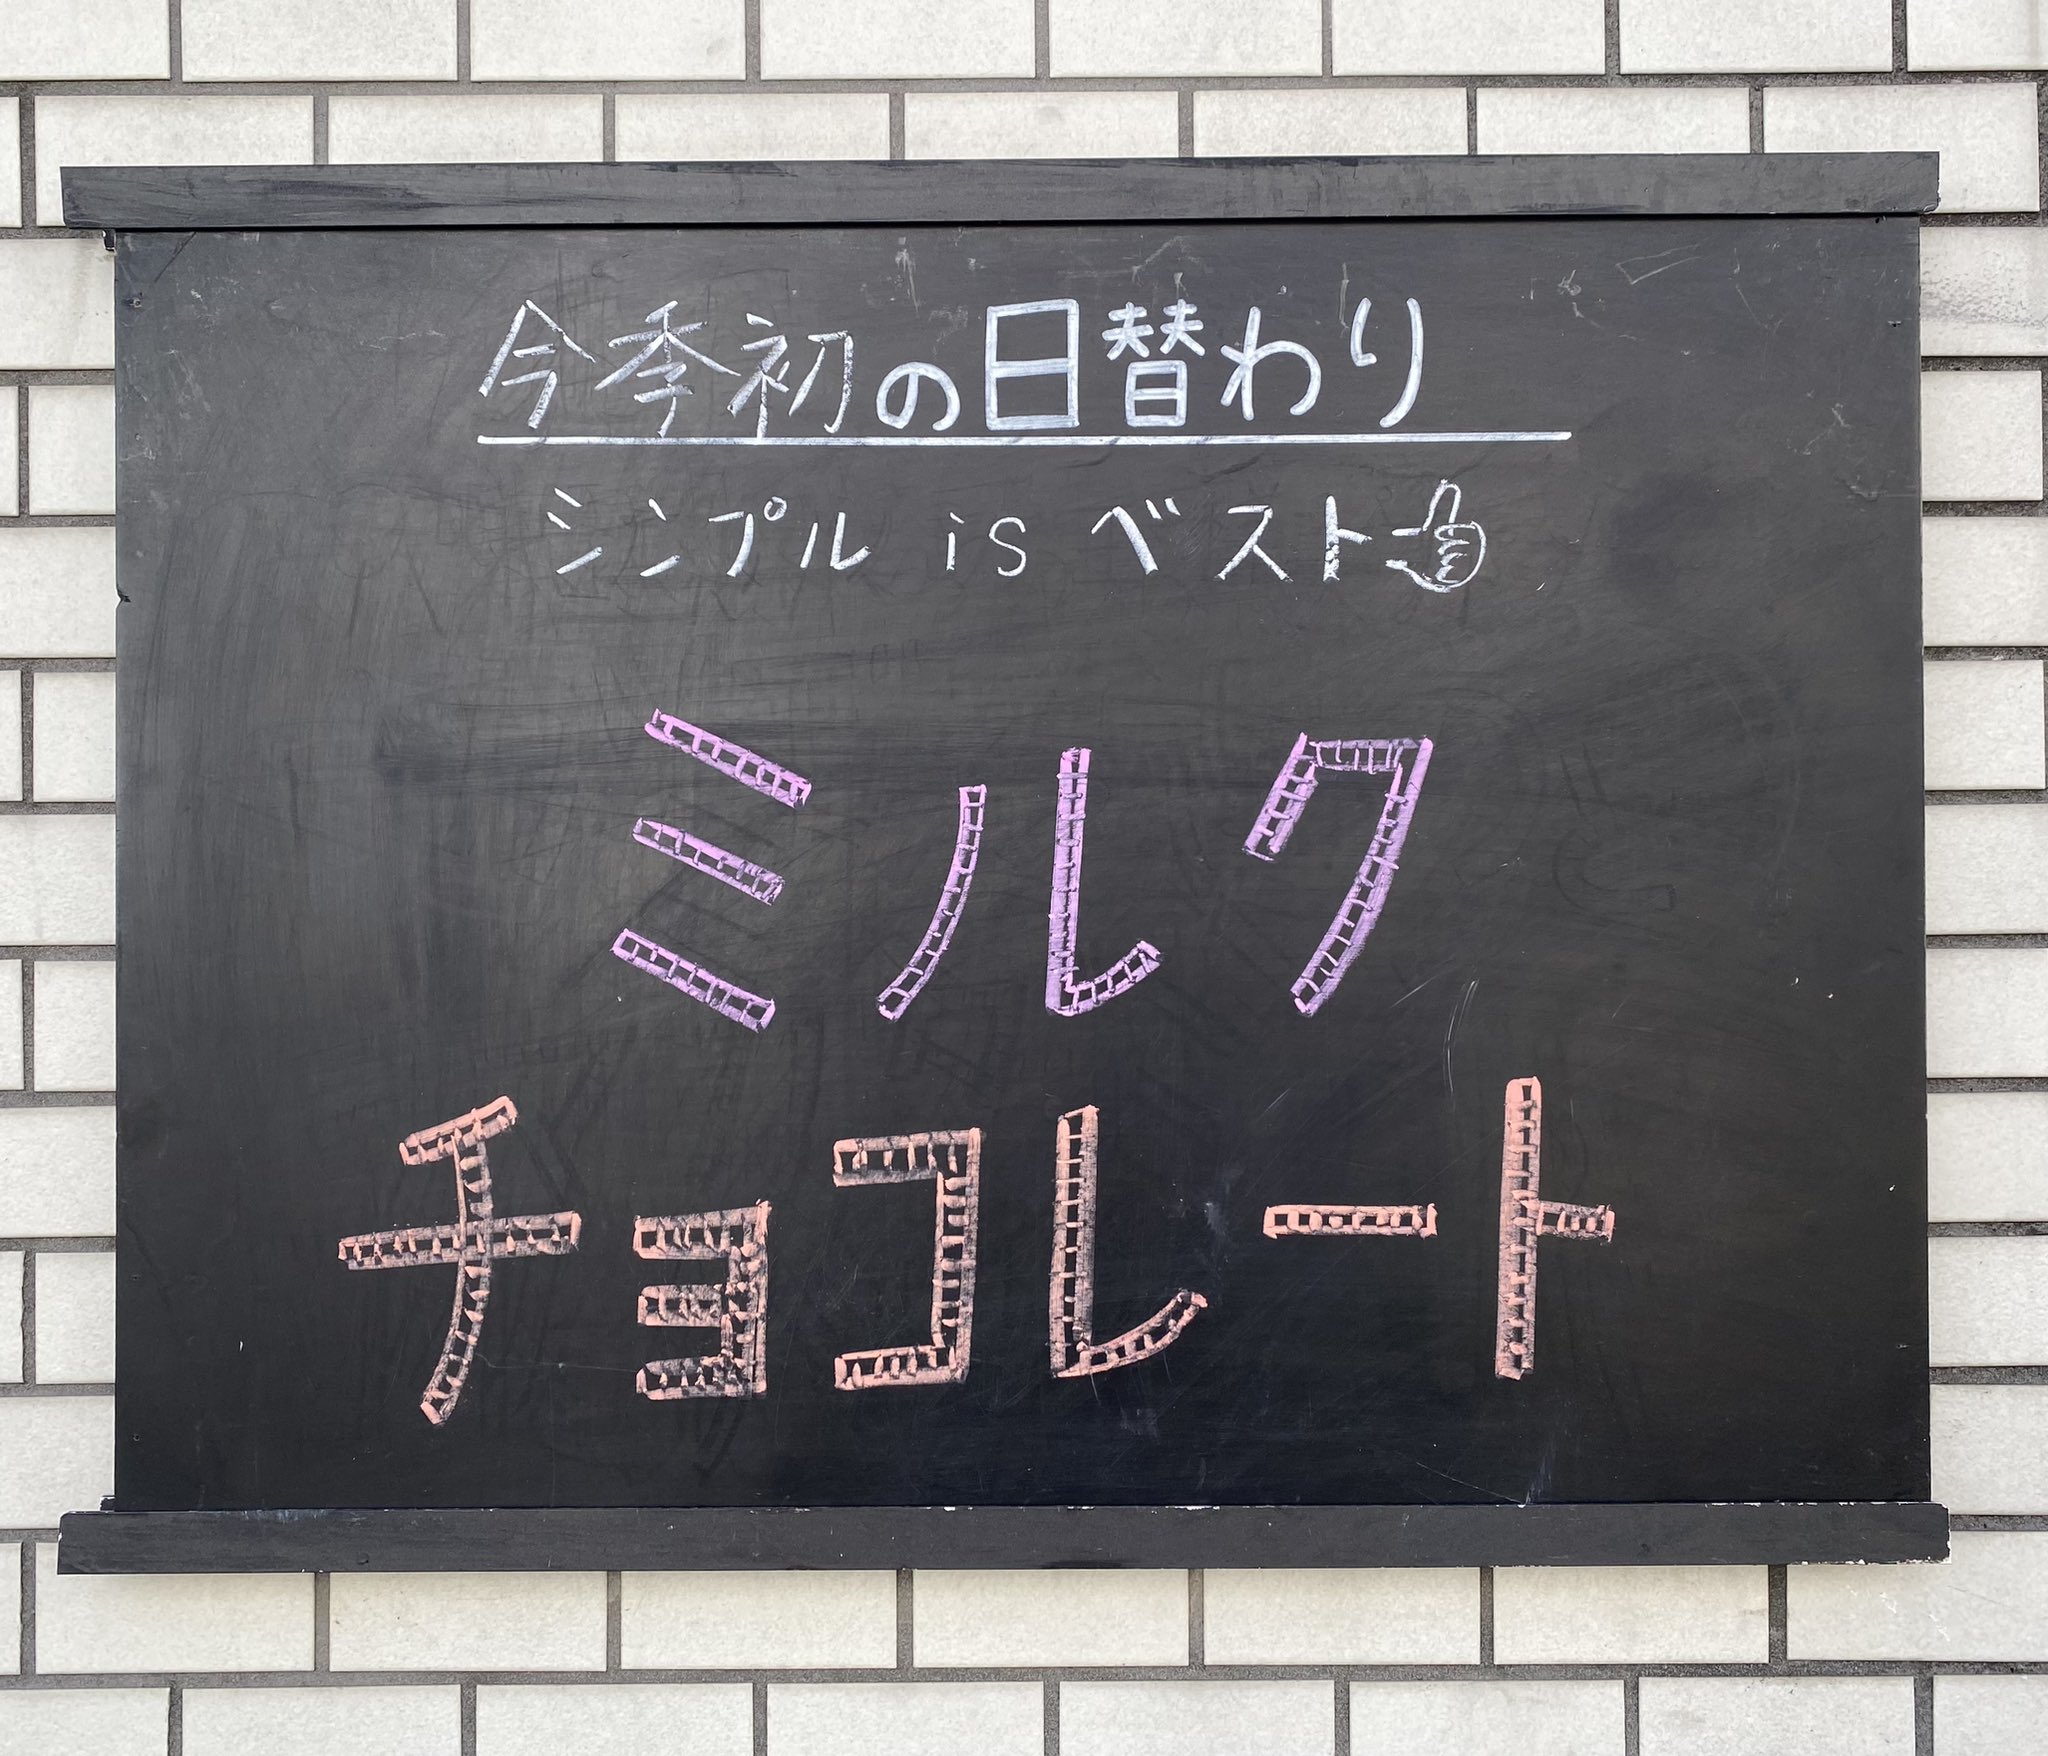 今季初の日替わり
シンプル is ベスト👍
ミルク
チョコレート